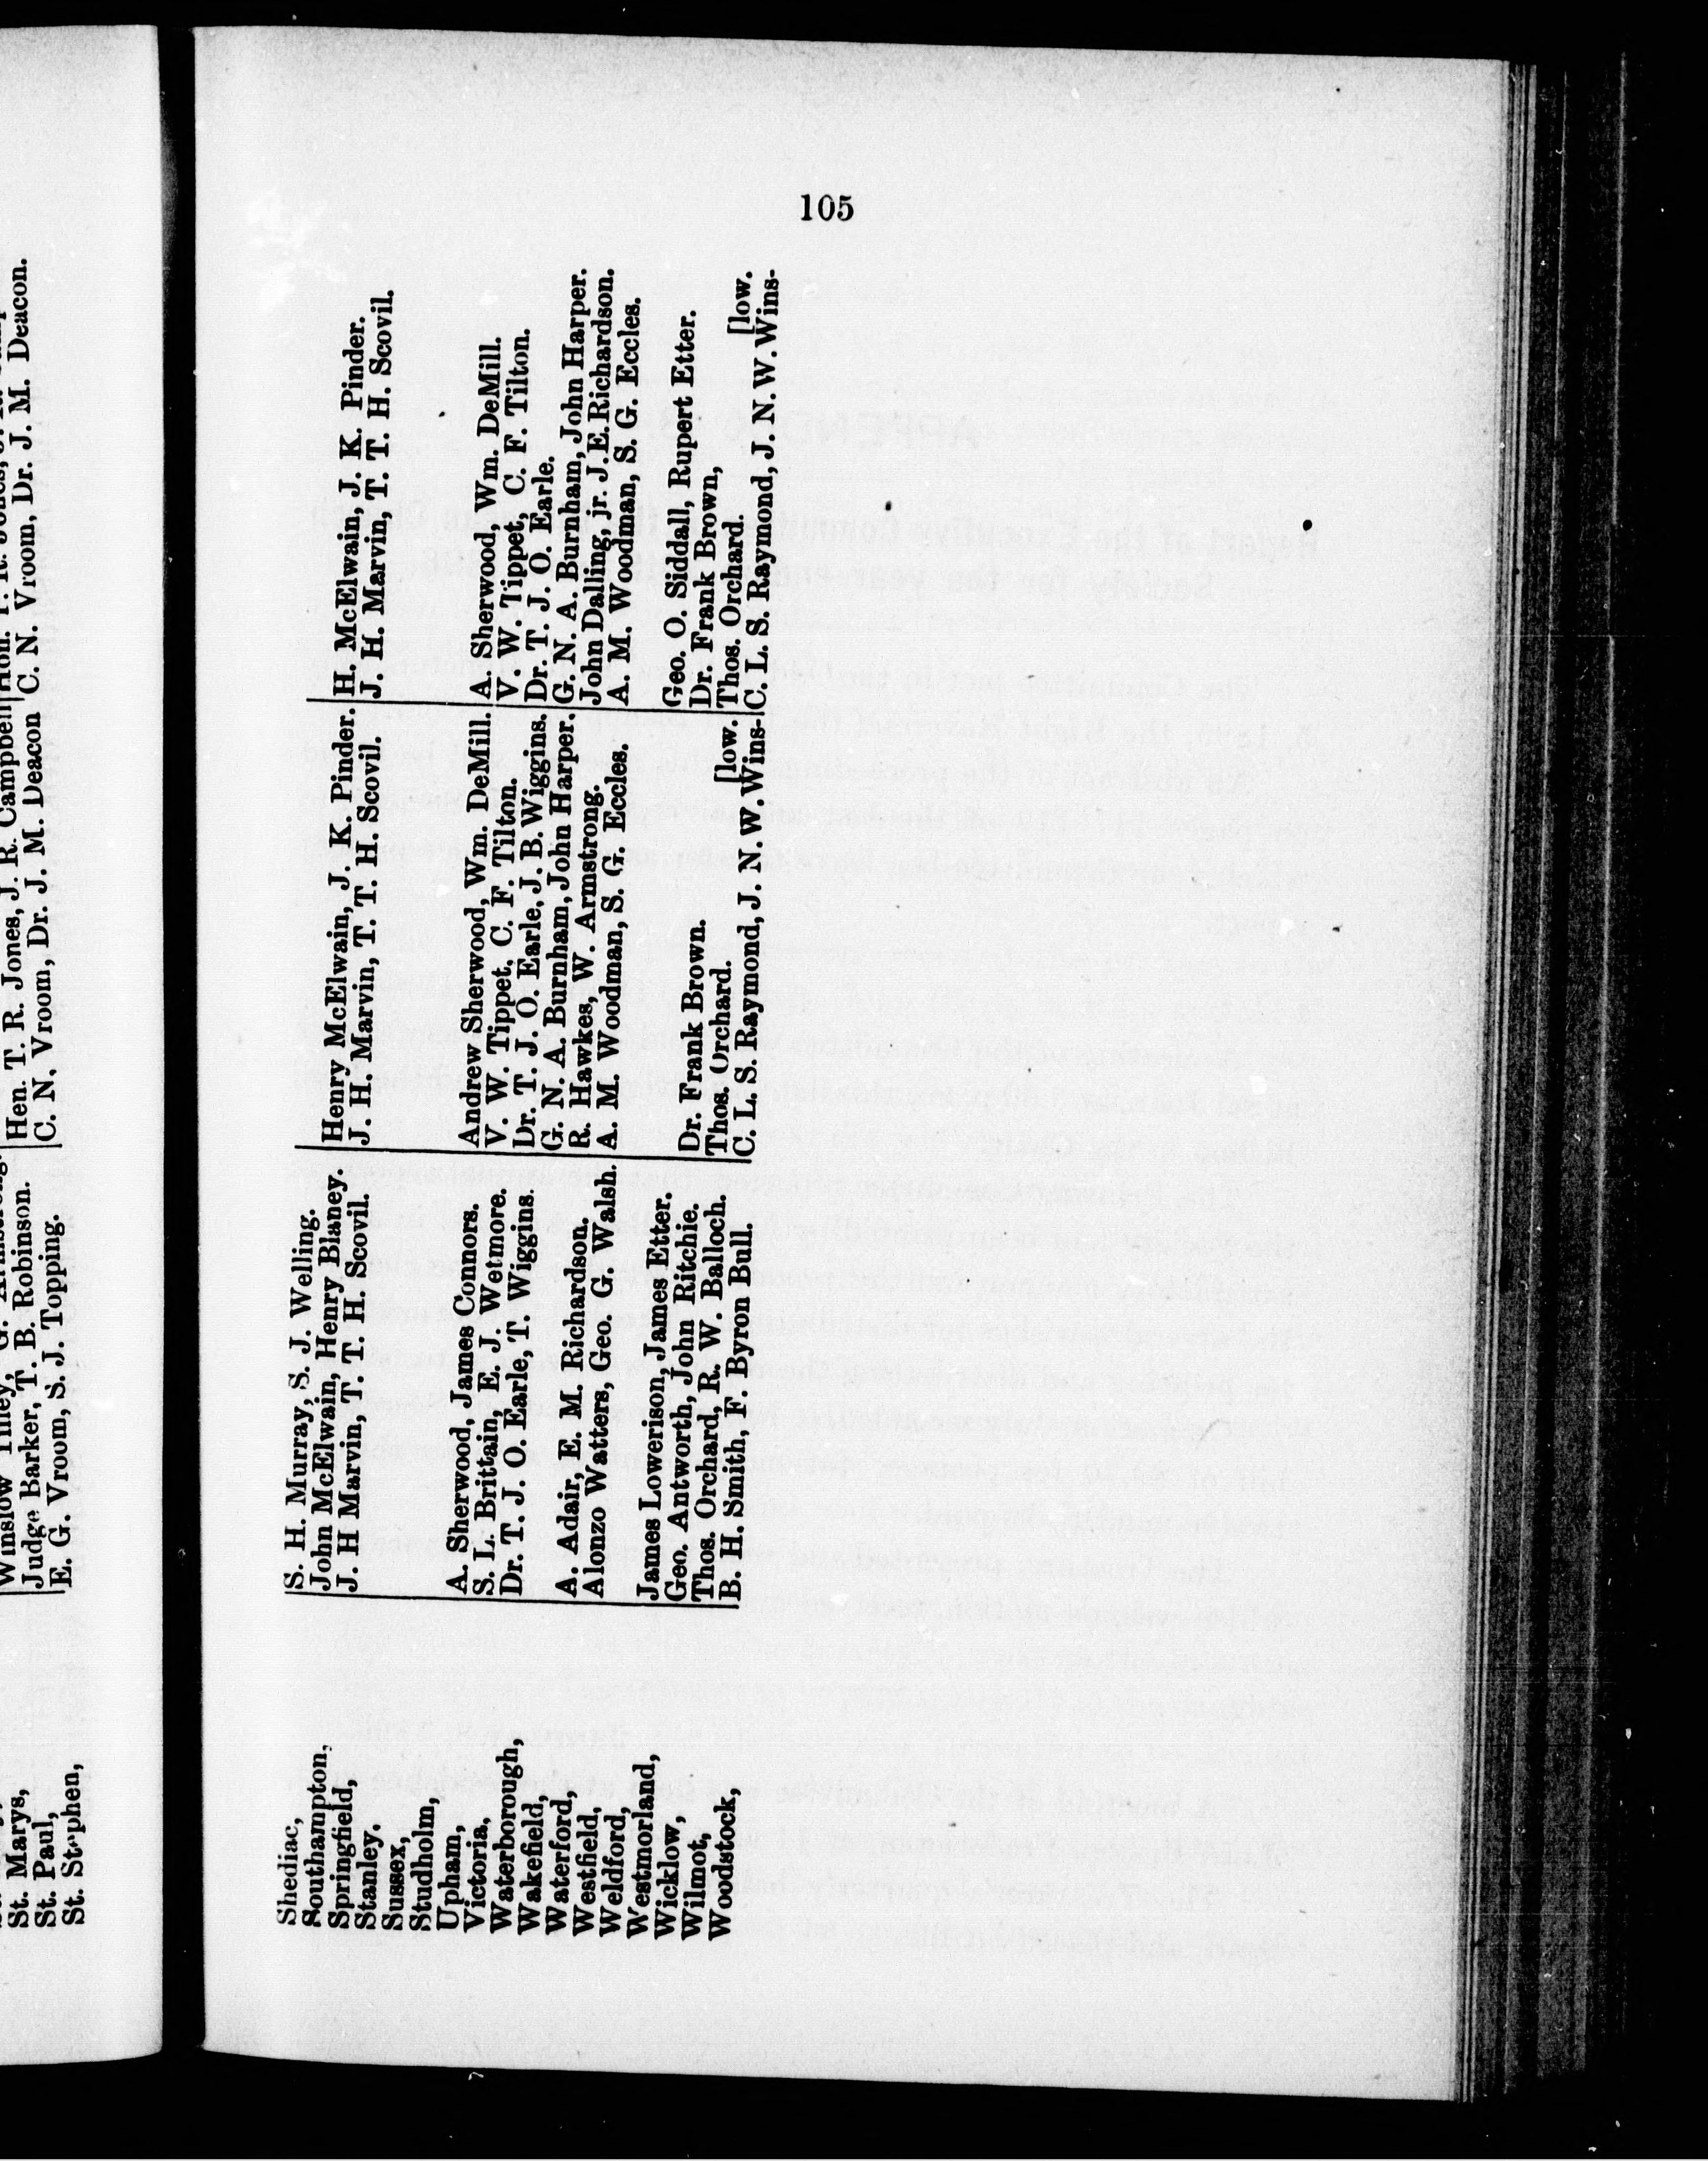 105
St. Marys, Winslow Tilley, G.
St. Paul, Judge Barker, T. B. Robinson. Hen. T. R. Jones, J. R. Campbell Hon. T. R. Jones,
St. Stephen, E. G. Vroom, S. J. Topping. C. N. Vroom, Dr. J. M. Deacon C. N. Vroom, Dr. J. M. Deacon.
Shediac, S. H. Murray, S. J. Welling.
Southampton, John McElwain, Henry Blaney. Henry McElwain, J. K. Pinder. H. McElwain, J. K. Pinder.
Springfield, J. H Marvin, T. T. H. Scovil. J. H. Marvin, T. T. H. Scovil. J. H. Marvin, T. T. H. Scovil.
Stanley.
Sussex,
Studholm,
Upham, A. Sherwood, James Connors. Andrew Sherwood, Wm. DeMill. A. Sherwood, Wm. DeMill.
Victoria, S. L. Brittain, E. J. Wetmore. V. W. Tippet, C. F. Tilton. V. W. Tippet, C. F. Tilton.
Waterborough, Dr. T. J. O. Earle, T. Wiggins. Dr. T. J. O. Earle, J. B. Wiggins. Dr. T. J. O. Earle.
Wakefield, G. N. A. Burnham, John Harper. G. N. A. Burnham, John Harper.
Waterford, A. Adair, E. M. Richardson. R. Hawkes, W. Armstrong. John Dalling, jr. J. E. Richardson.
Westfield, Alonzo Watters, Geo. G. Walsh. A. M. Woodman, S. G. Eccles. A. M. Woodman, S. G. Eccles.
Weldford,
Westmorland, James Lowerison, James Etter. Geo. O. Siddall, Rupert Etter.
Wicklow, Geo. Antworth, John Ritchie. Dr. Frank Brown. Dr. Frank Brown,
Wilmot, Thos. Orchard, R. W. Balloch. Thos. Orchard. [low. Thos. Orchard. [low.
Woodstock, B. H. Smith, F. Byron Bull. C. L. S. Raymond, J. N. W. Wins- C. L. S. Raymond, J. N. W. Wins-